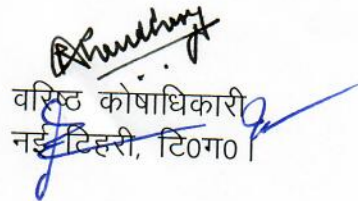 वरिष्ठ कोषाधिकारी
नई टिहरी, टि०ग०।